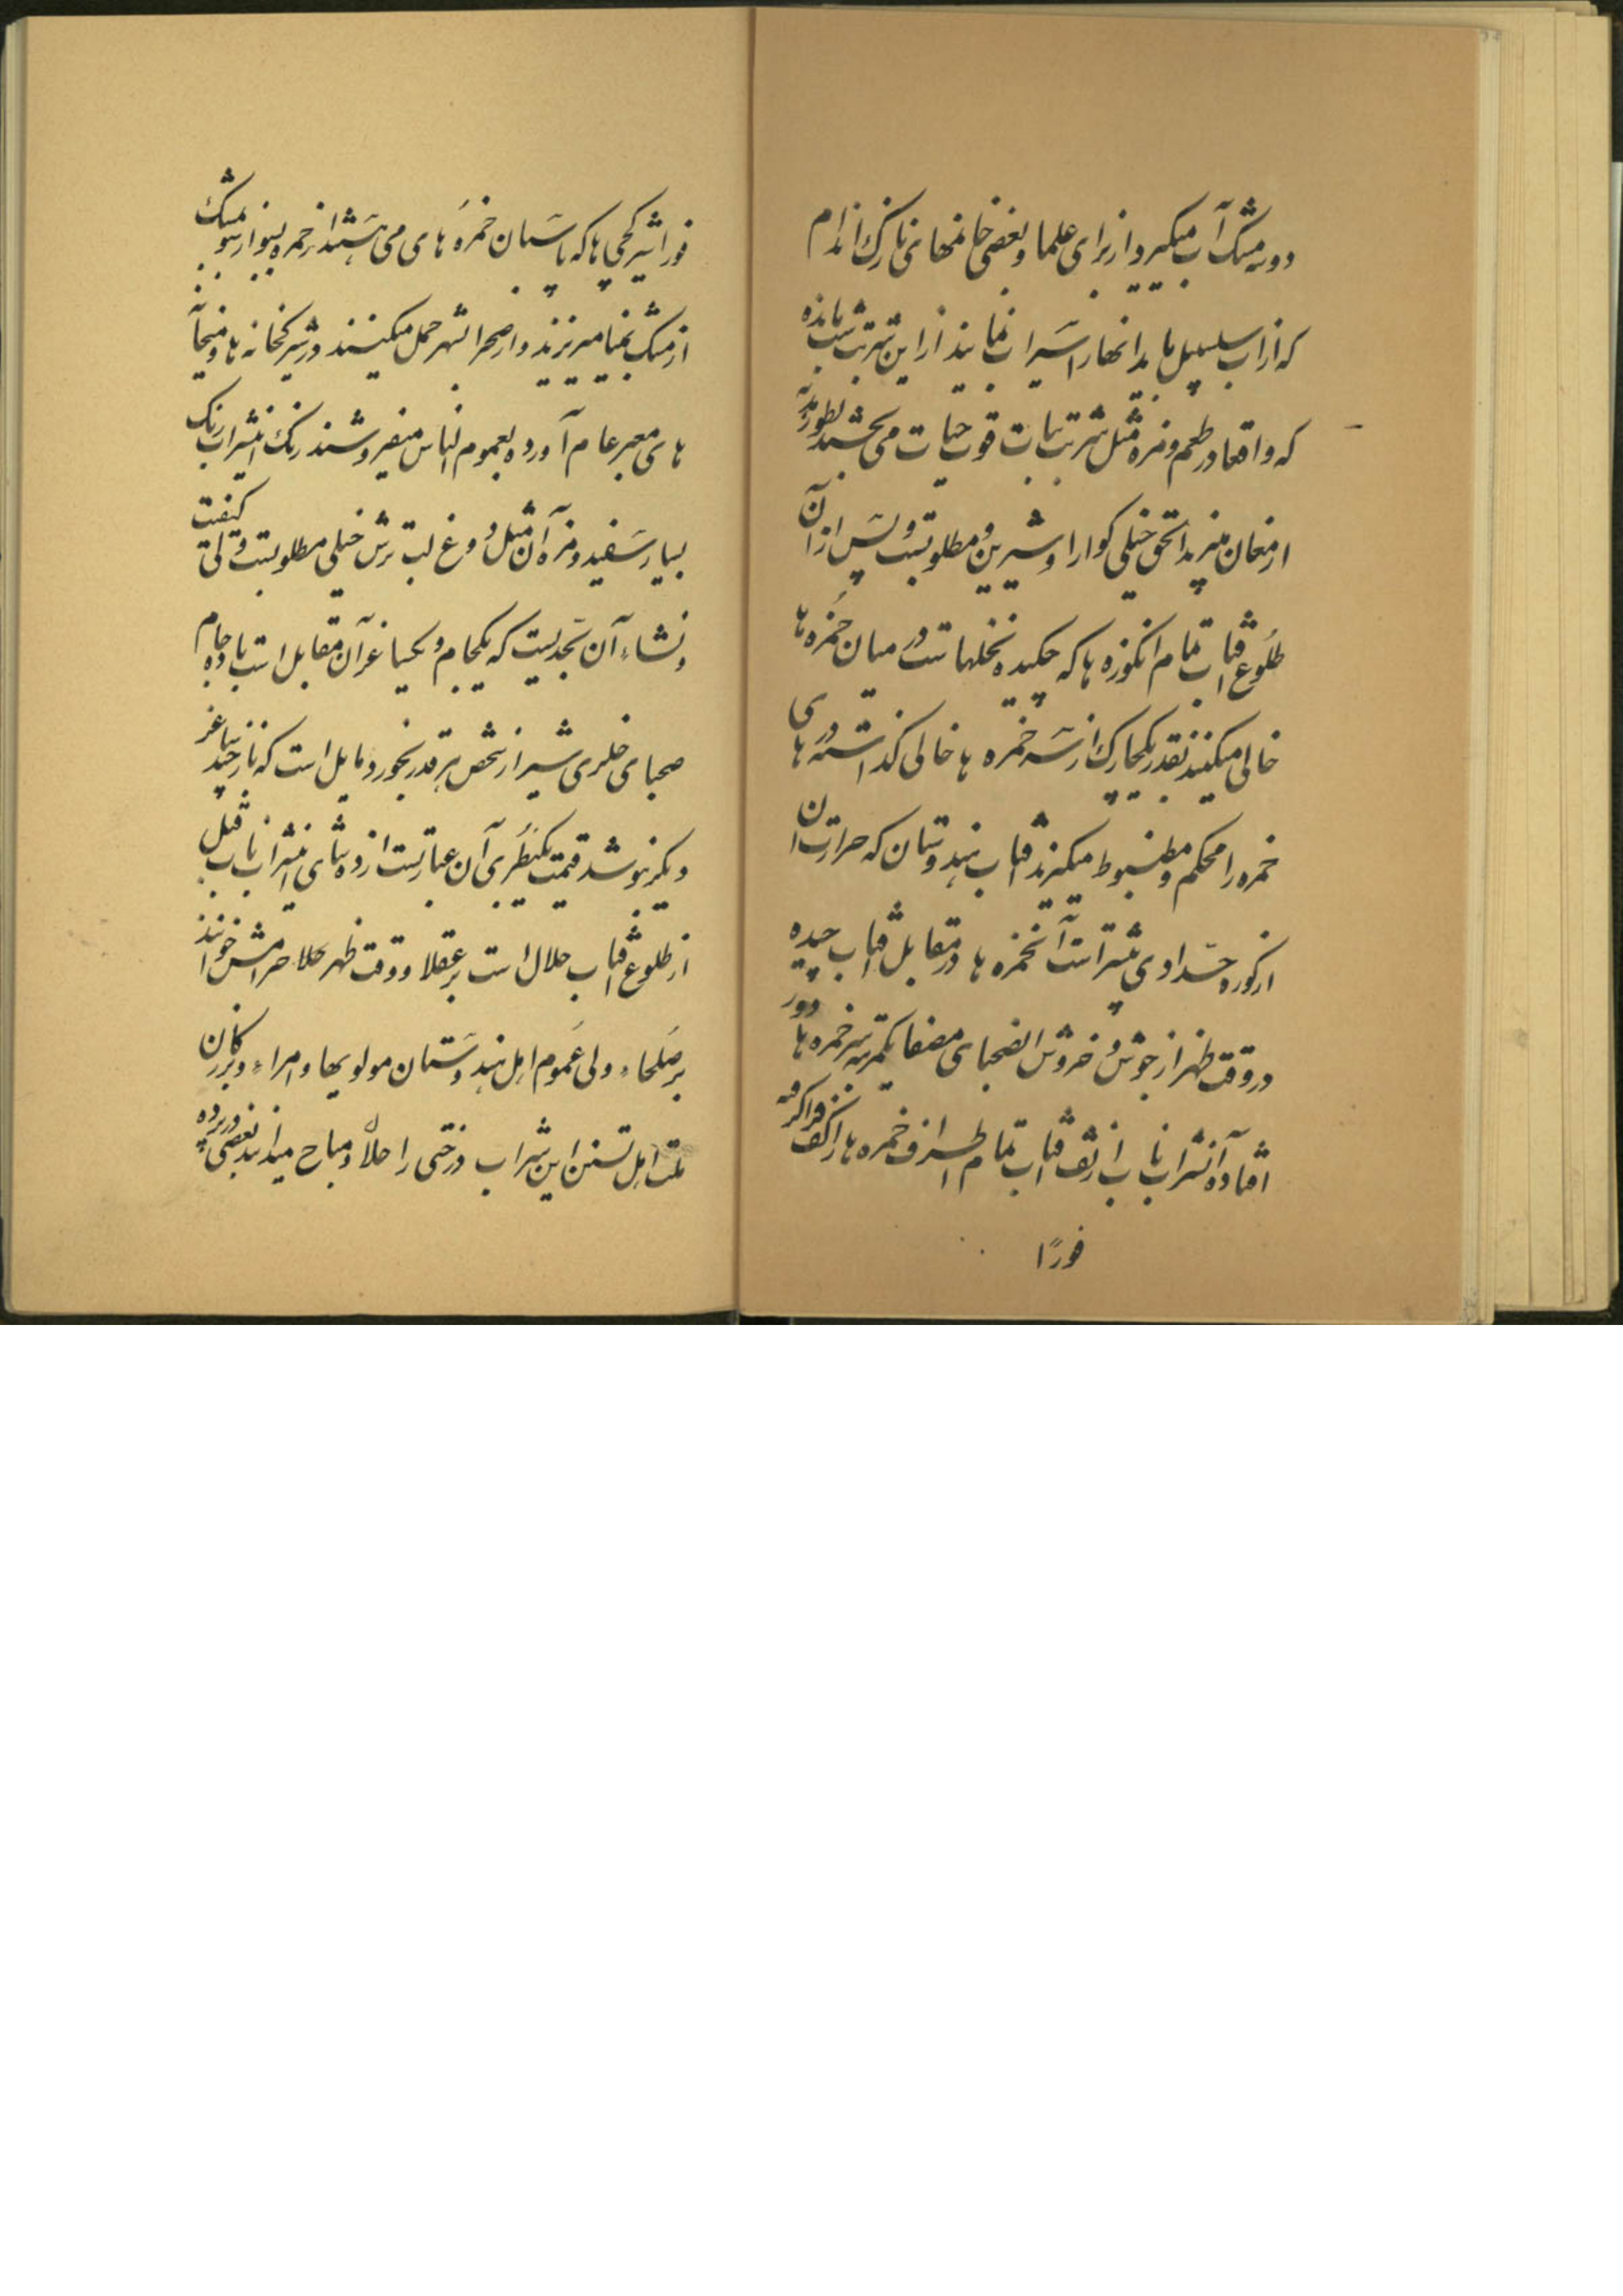 دو سه مشک آب میگیرد از برای علما و بعضی خانمهای نازک اندام
که از آب سلسبیل باید آنها را سیراب نمایند از این شربت شب مانده
که واقعا در طعم و مزه مثل شربت نبات قوت حیات می بخشد بطور هدیه
ارمغان میبرند الحق خیلی کوارا و شیرین و مطلوبست و پس از آن
طلوع آفتاب تمام انکوزه ها که چکیده نخلهاست در میان خمره ها
خالی میکنند بقدر یکچارک از سر خمره ها خالی کذاشته در های
خمره را محکم و مظبوط میکیرند آفتاب هندوستان که حرارت آن
از کوره حدادی بیشتر است آن خمره ها در مقابل آفتاب چیده
در وقت ظهر از جوش و خروش آن صحبای مصفا یکمرتبه سر خمره ها دور
افتاده آن شراب ناب از تف آفتاب تمام اطراف خمره ها را کف فرا کرفته
فورًا
فورا شیرکچی ها که پاسبان خمره های می هستند از خمره بسبو از سبو بمشک
از مشک بخیا میریزند و از صحرا بشهر حمل میکنند در شیرکخانه ها و میخانه
های معبر عام آورده بعموم الناس میفروشند رنک این شراب رنک
بسیار سفید و مزه آن مثل دوغ لب ترش خیلی مطلوبست ولی کیفیت
و نشاء آن بحدیست که یکجام و یکساغر آن مقابل است با ده جام
صحبای خلری شیراز شخص هر قدر بخورد مایل است که باز چند ساغر
دیکر بنوشد قیمت یک بطری آن عبارتست از دو شاهی این شراب ناب قبل
از طلوع آفتاب حلال است بر عقلا و وقت ظهر کلا حرامش خوانند
بر صلحاء ولی عموم اهل هندوستان مولویها و امراء و بزرکان
ملت اهل تسنن این شراب درختی را حلال و مباح میدانند بعضی در پرده